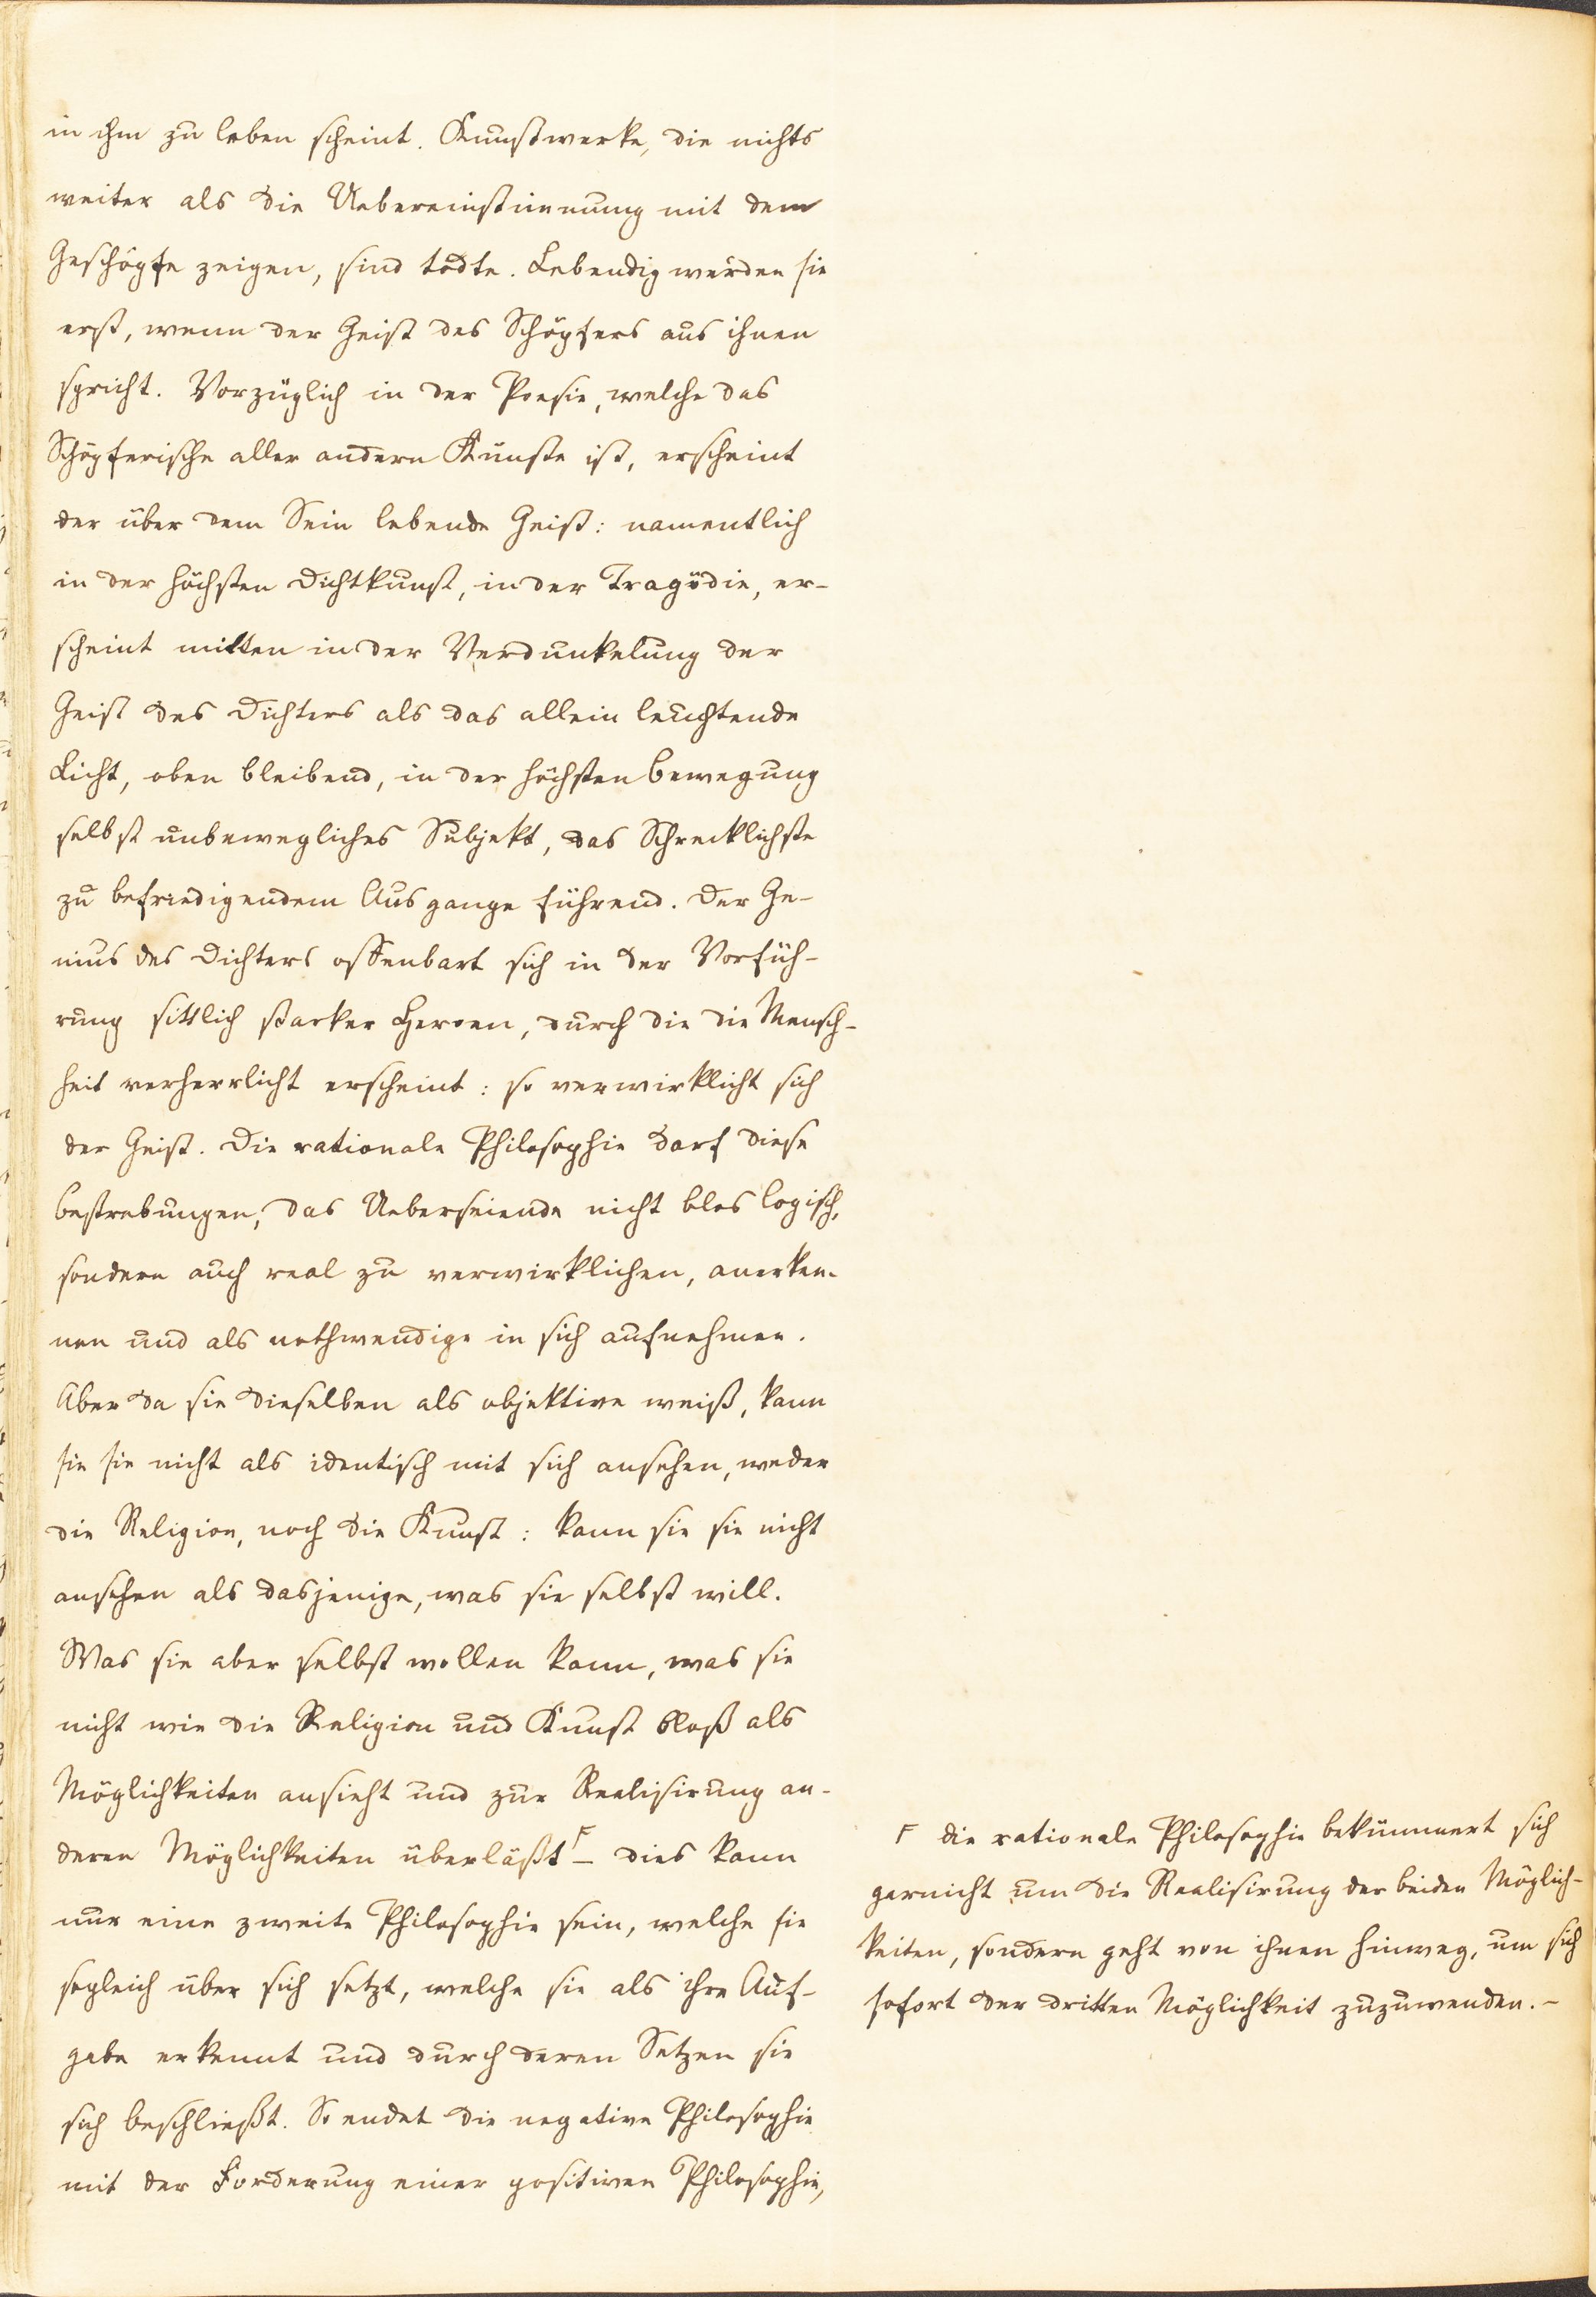 in ihm zu leben scheint. Kunstwerke, die nichts
weiter als die Uebereinstimmung mit dem
Geschöpfe zeigen, sind todte. Lebendig werden sie
erst, wenn der Geist des Schöpfers aus ihnen
spricht. Vorzüglich in der Poesie, welche das
Schöpferische aller andern Künste ist, erscheint
der über dem Sein lebende Geist: namentlich
in der höchsten Dichtkunst, in der Tragödie, er-
scheint mitten in der Verdunkelung der
Geist des Dichters als das allein leuchtende
Licht, oben bleibend, in der höchsten Bewegung
selbst unbewegliches Subjekt, das Schrecklichste
zu befriedigendem Ausgange führend. Der Ge-
nius des Dichters offenbart sich in der Vorfüh-
rung sittlich starker Heroen, durch die die Mensch-
heit verherrlicht erscheint: so verwirklicht sich
der Geist. Die rationale Philosophie darf diese
Bestrebungen, das Ueberseiende nicht blos logisch,
sondern auch real zu verwirklichen, anerken-
nen und als nothwendige in sich aufnehmen.
Aber da sie dieselben als objektive weiß, kann
sie sie nicht als identisch mit sich ansehen, weder
die Religion, noch die Kunst: kann sie sie nicht
ansehen als dasjenige, was sie selbst will.
Was sie aber selbst wollen kann, was sie
nicht wie die Religion und Kunst bloß als
Möglichkeiten ansieht und zur Realisirung an-
deren Möglichkeiten überläßt Γ – dies kann
nur eine zweite Philosophie sein, welche sie
sogleich über sich setzt, welche sie als ihre Auf-
gabe erkennt und durch deren Setzen sie
sich beschließt. So endet die negative Philosophie
mit der Forderung einer positiven Philosophie,
Γ die rationale Philosophie bekümmert sich
garnicht um die Realisirung der beiden Möglich-
keiten, sondern geht von ihnen hinweg, um sich
sofort der dritten Möglichkeit zuzuwenden. –